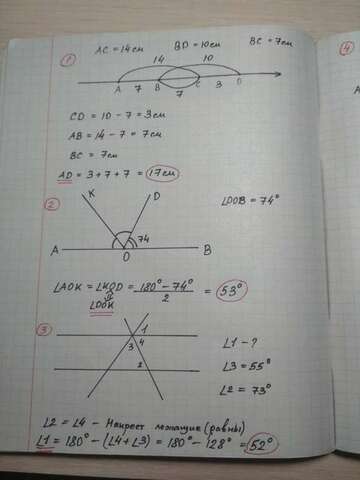 AC = 14см BD = 10см BC = 7см
1
14 10
A 7 B C 3 D
7
CD = 10 - 7 = 3см
AB = 14 - 7 = 7см
BC = 7см
AD = 3 + 7 + 7 = 17см
2
K D
∠DOB = 74°
74
A O B
∠AOK = ∠KOD = 180° - 74° / 2 = 53°
∠DOK
3
1
3 4
2
∠1 - ?
∠3 = 55°
∠2 = 73°
∠2 = ∠4 - Накрест лежащие (равны)
∠1 = 180° - (∠4 + ∠3) = 180° - 128° = 52°
4
A